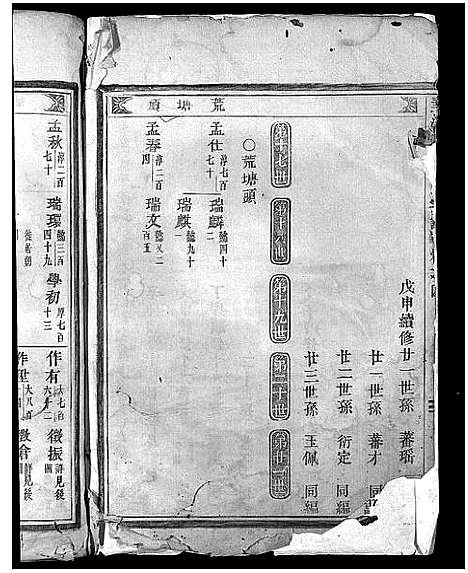 戊申續修廿一世孫 蕃瑶
廿一世孫 蕃才 同
廿二世孫 衍定 同編
廿三世孫 玉佩 同編
第十七世
第十八世
第十九世
第二十世
第廿一世
〇荒塘頭
荒塘頭
孟仕 淳七百七十 瑞麟 懿四十二
瑞麒 懿九十一
孟春 淳二百四 瑞文
孟秋 淳二百七十 瑞環 懿三百四十九 學初 厚七百十三 作有 徵振 詳見後圖
作 大八百 徵倉 詳見後